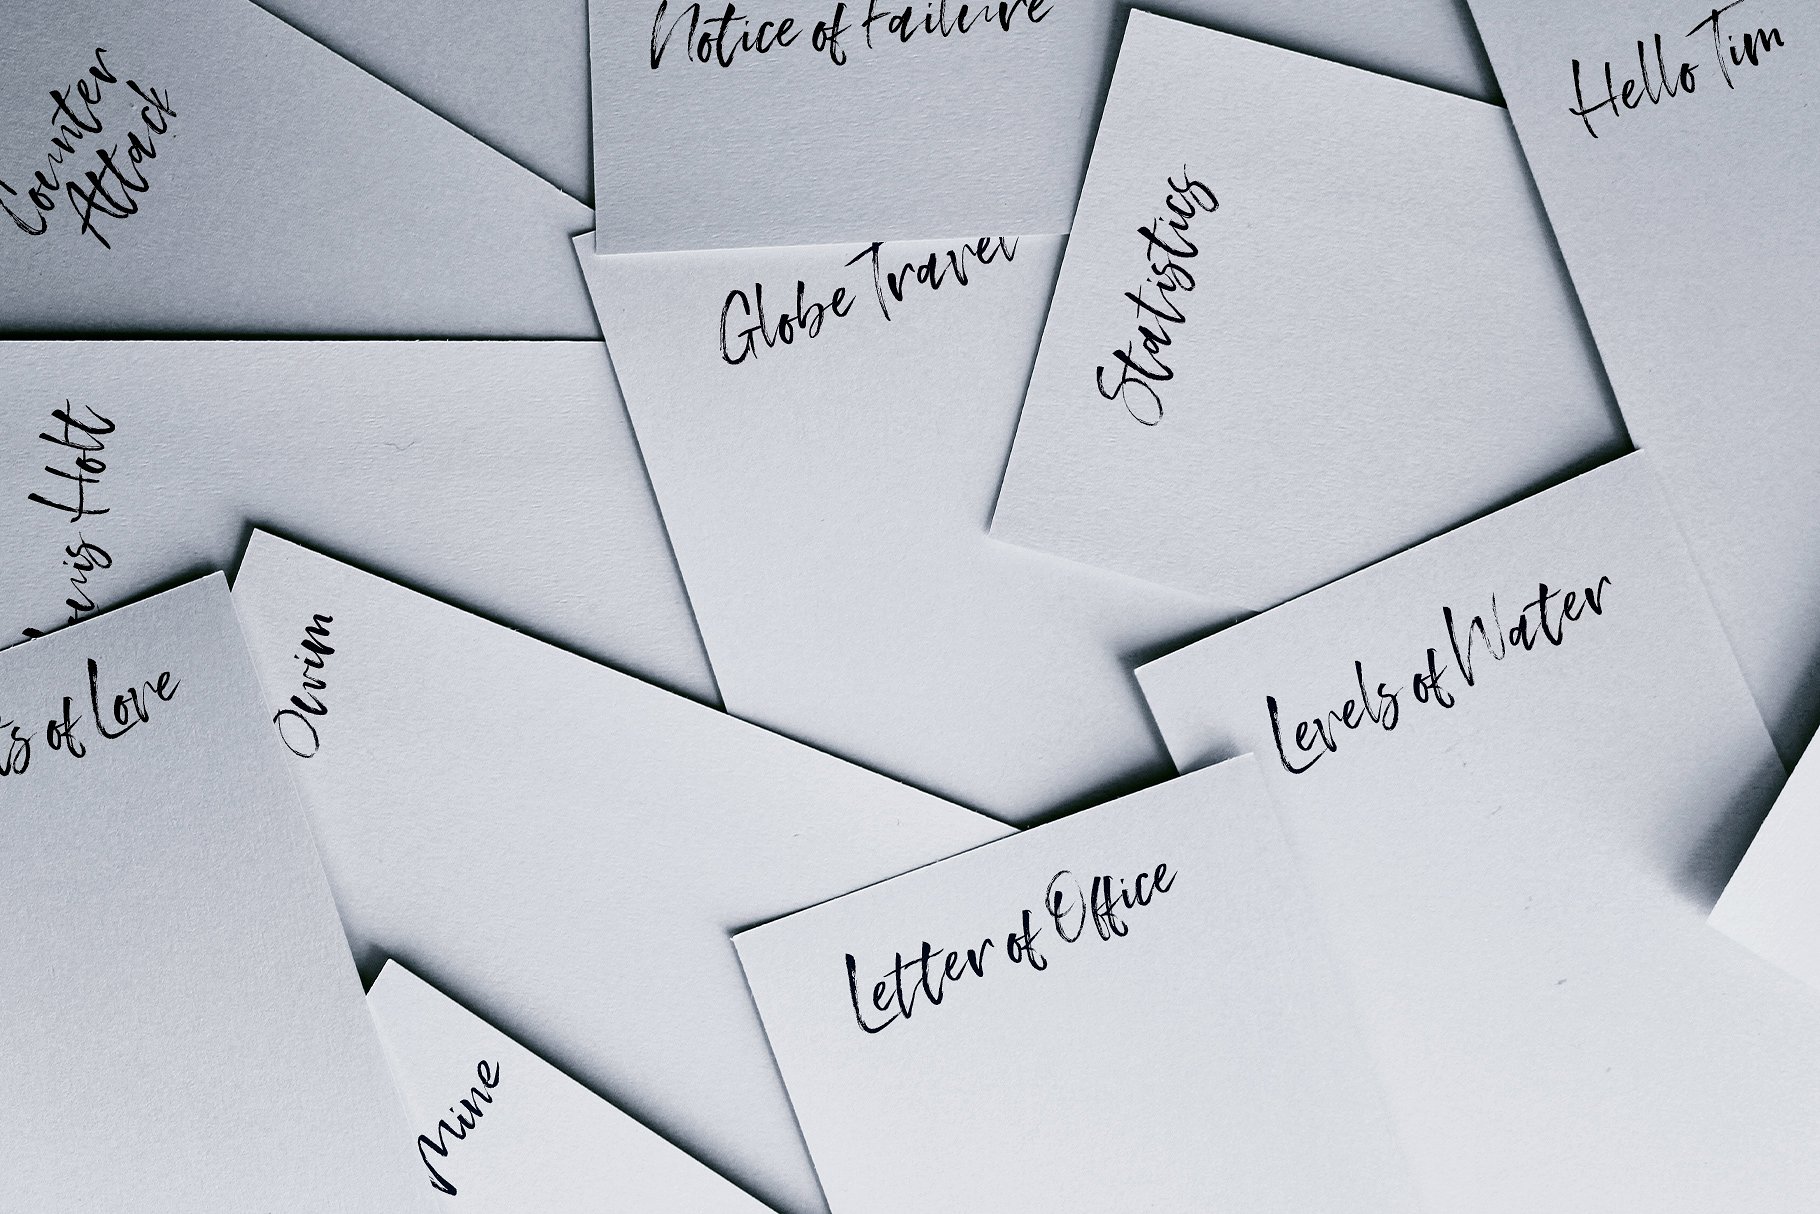 Notice of Failure
Hello Tim
Counter
Attack
Statistics
Globe Travel
Holt
Levels of Water
of Love
Letter of Office
Mine